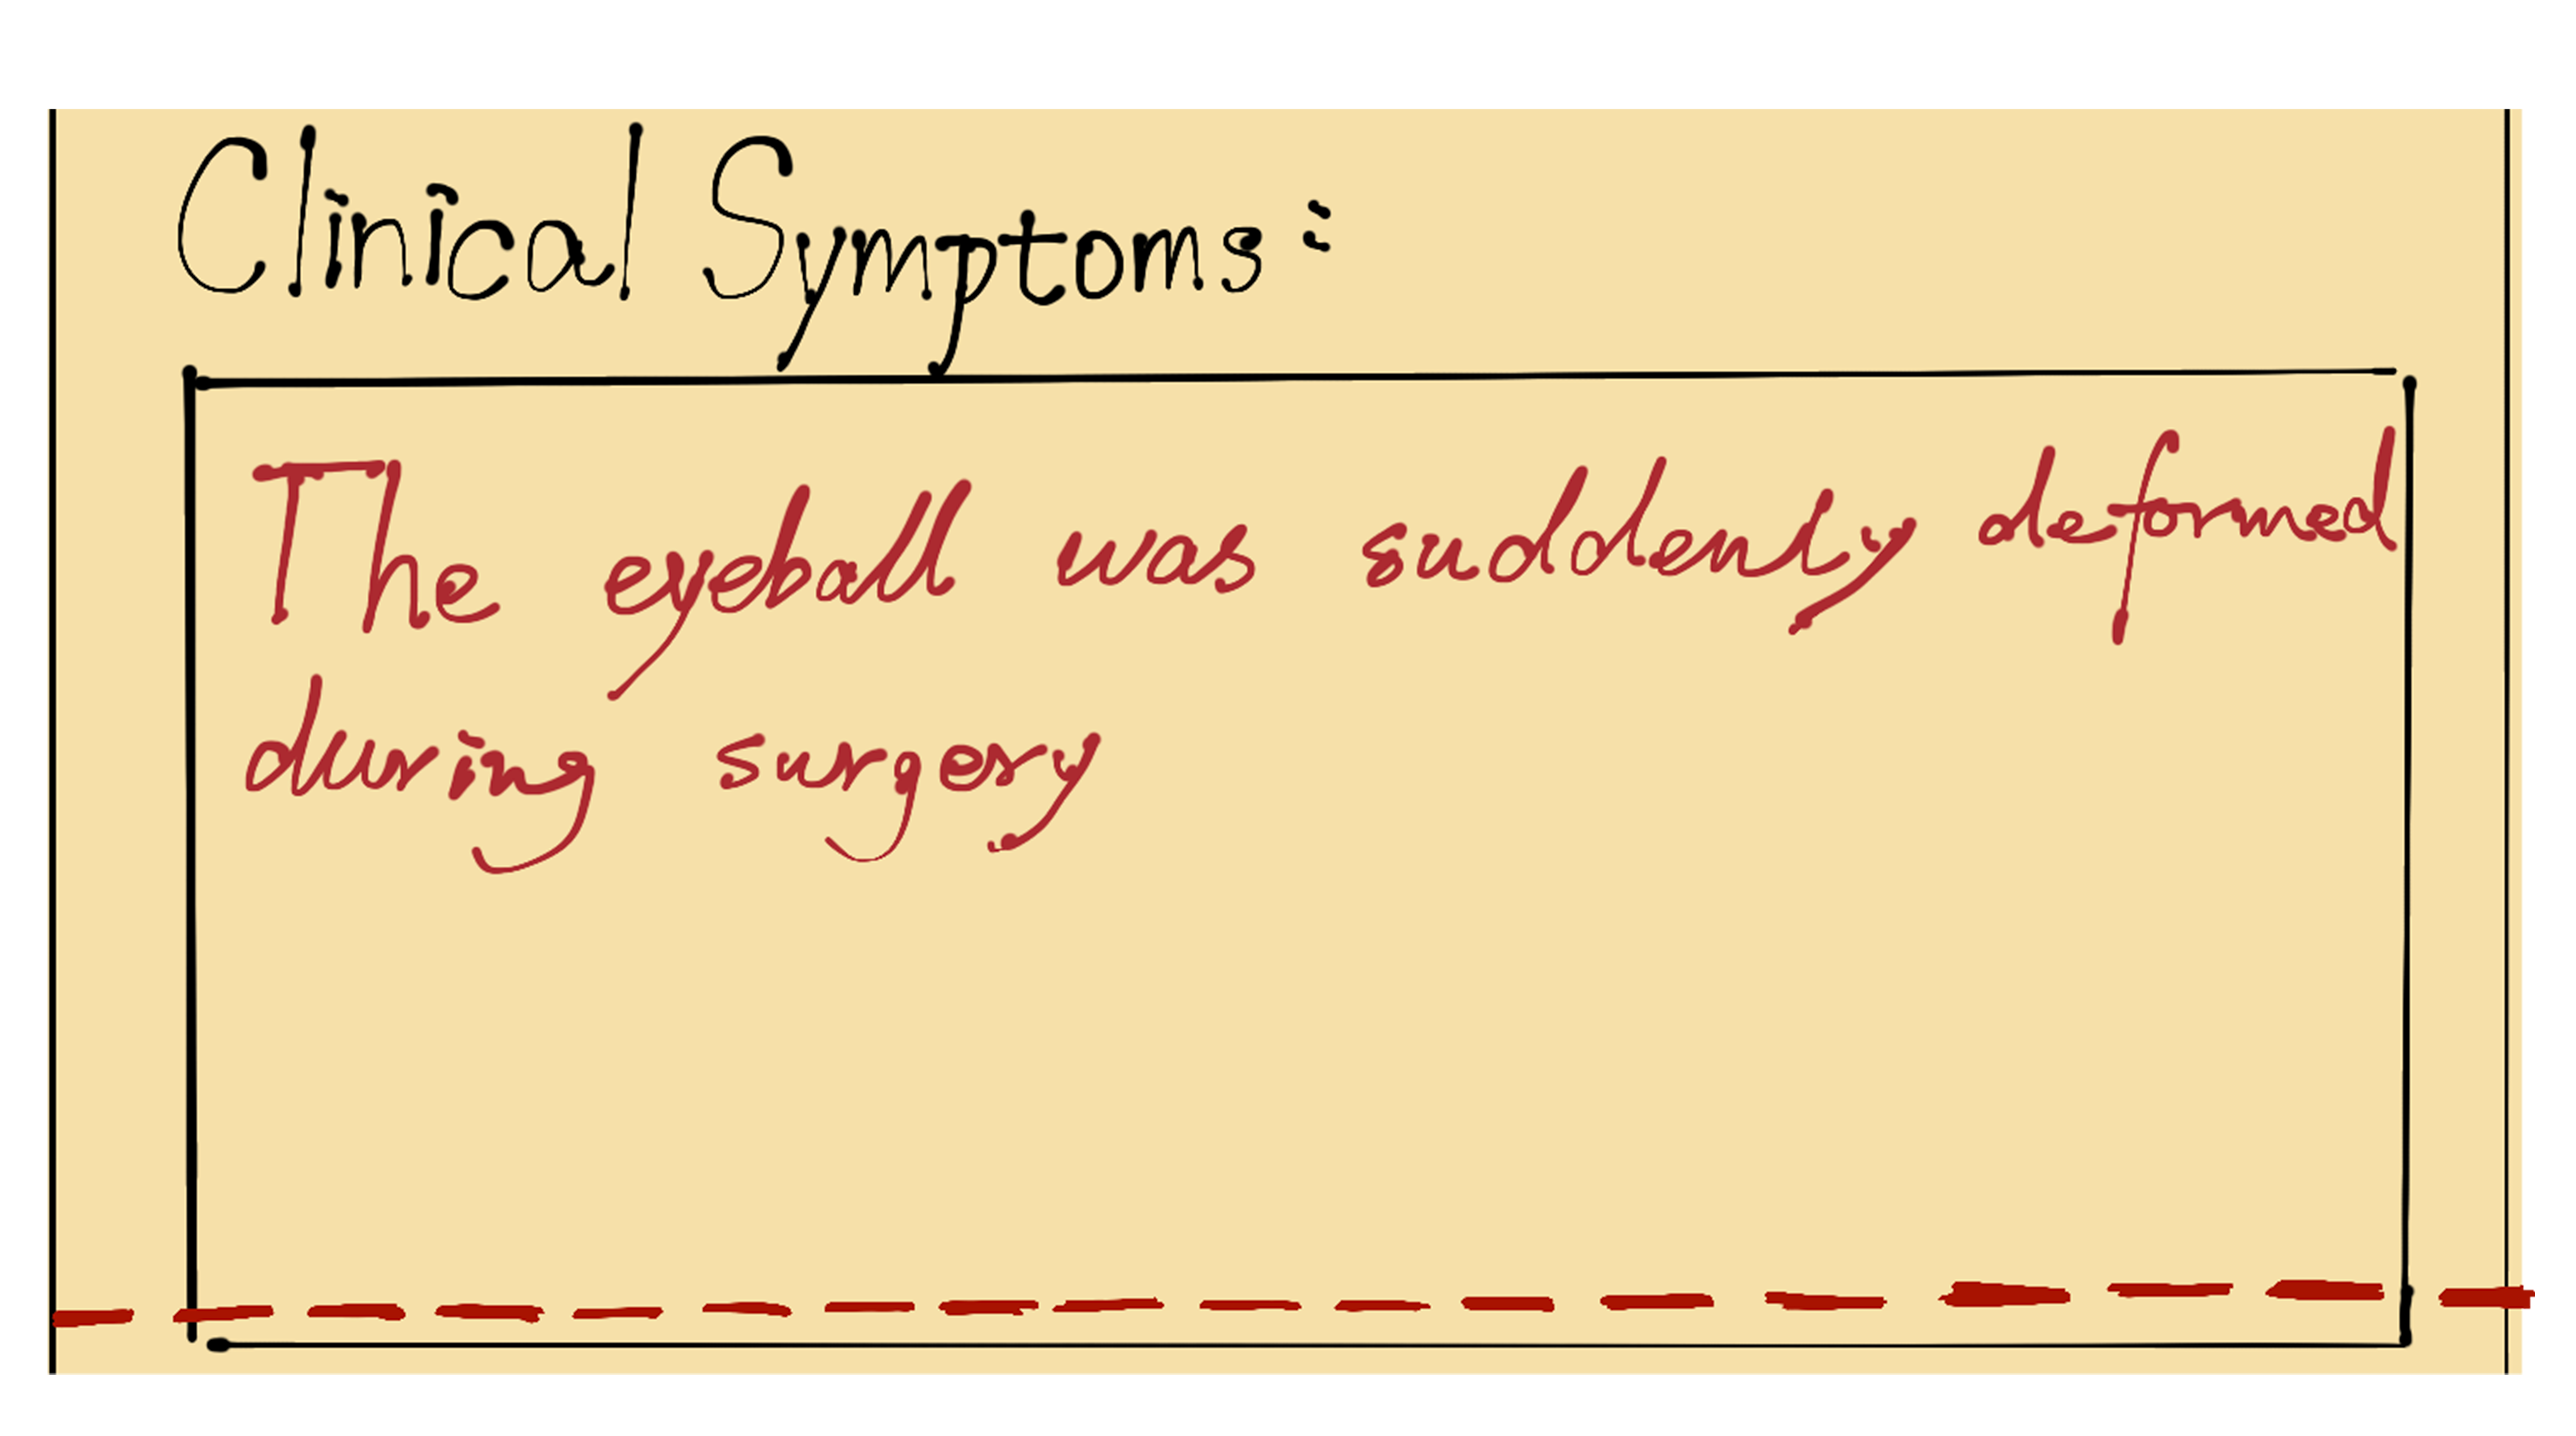 Clinical Symptoms:
The eyeball was suddenly deformed
during surgery